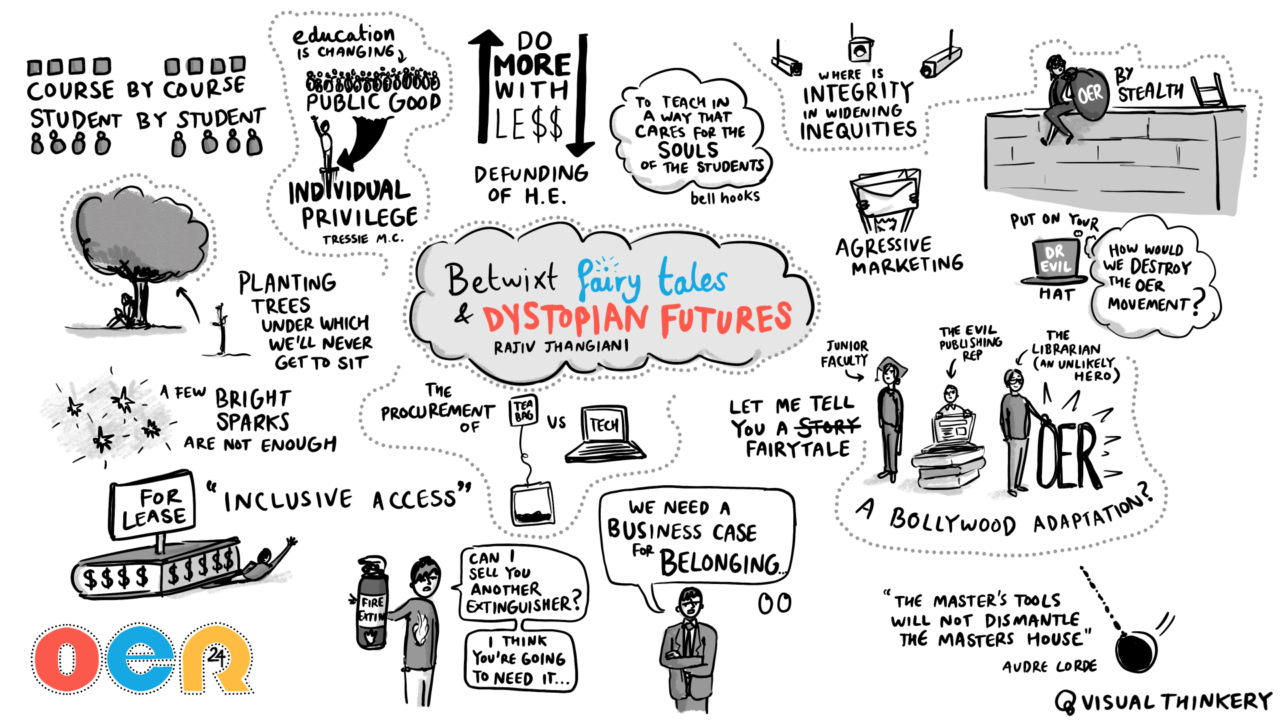 COURSE BY COURSE
STUDENT BY STUDENT
education
IS CHANGING
PUBLIC GOOD
INDIVIDUAL
PRIVILEGE
TRESSIE M.C.
DO
MORE
WITH
LE$$
DEFUNDING
OF H.E.
TO TEACH IN
A WAY THAT
CARES FOR THE
SOULS
OF THE STUDENTS
bell hooks
WHERE IS
INTEGRITY
IN WIDENING
INEQUITIES
OER
BY
STEALTH
AGRESSIVE
MARKETING
PUT ON YOUR
DR
EVIL
HAT
HOW WOULD
WE DESTROY
THE OER
MOVEMENT?
PLANTING
TREES
UNDER WHICH
WE'LL NEVER
GET TO SIT
Betwixt fairy tales
& DYSTOPIAN FUTURES
RAJIV JHANGIANI
A FEW BRIGHT
SPARKS
ARE NOT ENOUGH
THE
PROCUREMENT
OF
TEA
BAG
VS
TECH
LET ME TELL
YOU A STORY
FAIRYTALE
JUNIOR
FACULTY
THE EVIL
PUBLISHING
REP
THE
LIBRARIAN
(AN UNLIKELY
HERO)
OER
A BOLLYWOOD ADAPTATION?
FOR
LEASE
"INCLUSIVE ACCESS"
$$$$ $$$$$
FIRE
EXTIN
CAN I
SELL YOU
ANOTHER
EXTINGUISHER?
I THINK
YOU'RE GOING
TO NEED IT...
WE NEED A
BUSINESS CASE
FOR BELONGING...
"THE MASTER'S TOOLS
WILL NOT DISMANTLE
THE MASTERS HOUSE"
AUDRE LORDE
oer
24
VISUAL THINKERY